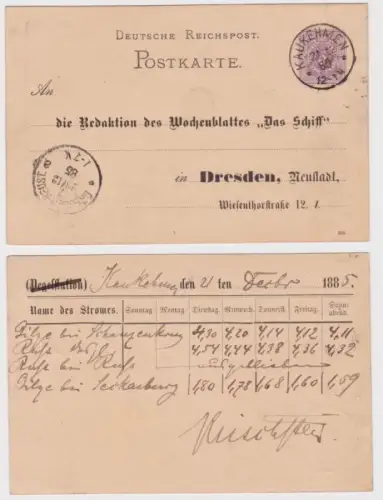 DEUTSCHE REICHSPOST.
POSTKARTE.
KAUKEHMEN
12-1N
An
die Redaktion des Wochenblattes „Das Schiff"
in Dresden, Neustadt,
Wiesenthorstraße 12. I.
(Pegelstation) Kaukehmen den 21 ten Decbr 1885.
Name des Stromes. Sonntag Montag Dienstag Mittwoch. Donnerst. Freitag. Sonnabend.
Gilge bei 4,30 4,20 4,14 4,12 4,11
Russ 4,54 4,44 4,38 4,36 4,32
Russ bei Russ ausgeblieben
Gilge bei Seckenburg 1,80 1,78 1,68 1,60 1,59